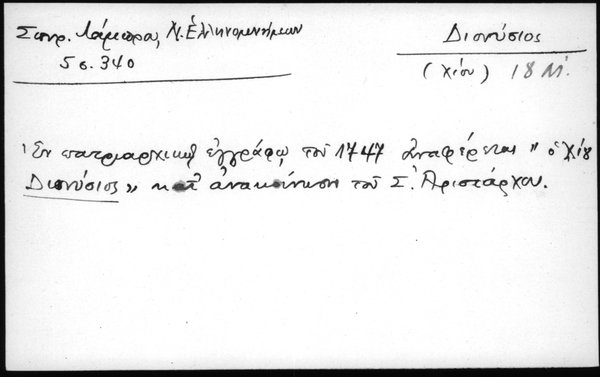 Σπυρ. Λάμπρα, Ν. Ἑλληνομνήμων
5 σ. 340
Διονύσιος
(Χίου) 18 Μ.
Ἐν πατριαρχικῷ ἐγγράφῳ τοῦ 1747 ἀναφέρεται „ ὁ Χίου
Διονύσιος „ κατ' ἀνακοίνωσιν τοῦ Σ. Ἀριστάρχου.